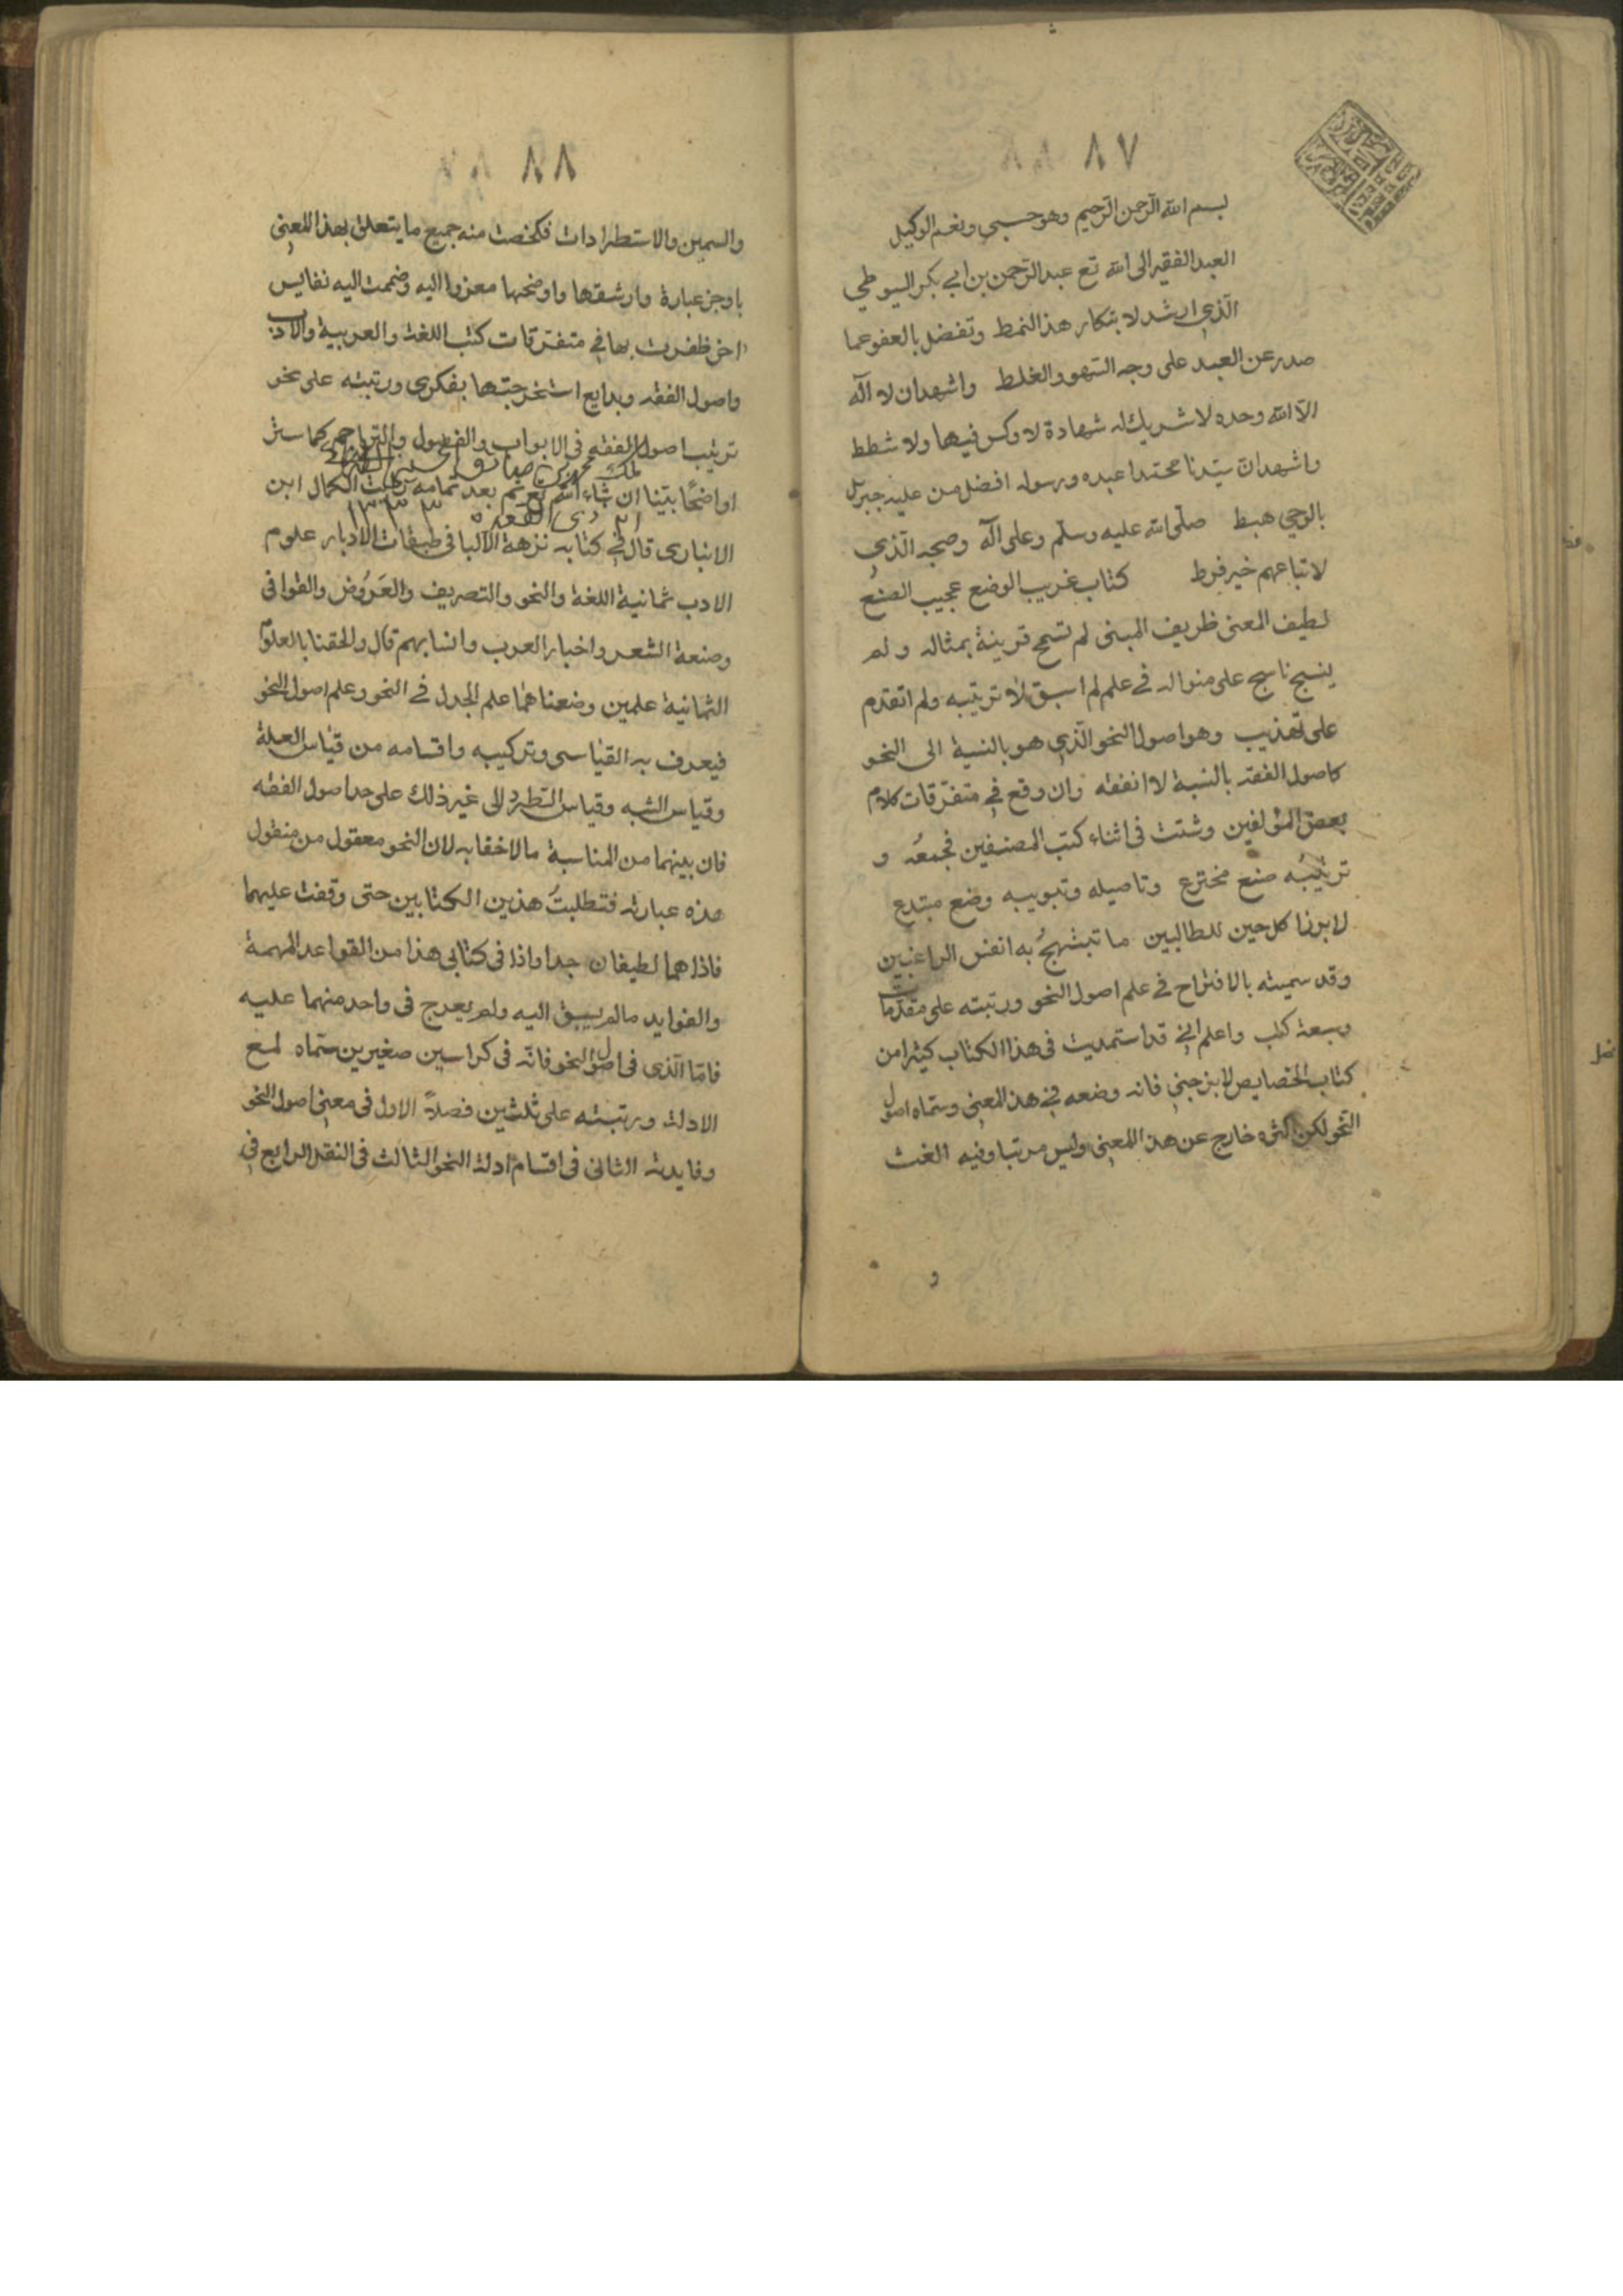 ٨٧
بسم الله الرحمن الرحيم وهو حسبي ونعم الوكيل
العبد الفقير الى الله تع عبد الرحمن بن ابي بكر السيوطي
الذي ارشد لابتكار هذا النمط وتفضل بالعفو عما
صدر عن العبد على وجه السهو والغلط واشهد ان لا اله
الا الله وحده لا شريك له شهادة لا وكس فيها ولا شطط
واشهد ان سيدنا محمدا عبده ورسوله افضل من عليه جبريل
بالوحي هبط صلى الله عليه وسلم وعلى آله وصحبه الذي
لاتباعهم خير فرط كتاب غريب الوضع عجيب الصنع
لطيف المعنى ظريف المبنى لم تسمح قرينة بمثاله ولم
ينسج ناسج على منواله في علم لم اسبق لا ترتيبه ولم اتقدم
على تهذيب وهو اصول النحو الذي هو بالنسبة الى النحو
كاصول الفقه بالنسبة لا انفقه وان وقع في متفرقات كلام
بعض المؤلفين وشتت في اثناء كتب المصنفين فجمعُه و
ترتيبُه صنع مخترع وتاصيله وتبويبه وضع مبتدع
لابرزا كل حين للطالبين ما تبتهجُ به انفس الراغبين
وقد سميته بالاقتراح في علم اصول النحو ورتبته على مقدمات
وسبعة كتب واعلم اني قد استمديت في هذا الكتاب كثيرا من
كتاب الخصايص لابن جني فانه وضعه في هذا المعنى وسماه اصول
النحو لكن اكثره خارج عن هذا المعنى وليس مرتبا وفيه الغث
و
٨٨
والسمين والاستطرادات فلخصت منه جميع ما يتعلق بهذا المعنى
باوجز عبارة وارشقها واوضحها معزوا اليه وضممت اليه نفايس
اخر ظفرت بها في متفرقات كتب اللغة والعربية والادب
واصول الفقه وبدايع استخرجتها بفكرى ورتبته على نحو
ترتيب اصول الفقه في الابواب والفصول والتراجم كما ستر
اواضحًا بيّنا ان شاء الله تع ثم بعد تمامه رايت الكمال ابن
٢١ ذي القعده ١٣٣٣
الانبارى قال في كتابه نزهة الالبا فى طبقات الادبار علوم
الادب ثمانية اللغة والنحو والتصريف والعَرُوض والقوافى
وصنعة الشعر واخبار العرب وانسابهم قال والحقنا بالعلوم
الثمانية علمين وضعناهما علم الجدل في النحو وعلم اصول النحو
فيعرف به القياسى وتركيبه واقسامه من قياس العلة
وقياس الشبه وقياس الطرد الى غير ذلك على حد اصول الفقه
فان بينهما من المناسبة ما لا خفا به لان النحو معقول من منقول
هذه عبارته فتطلبتُ هذين الكتابين حتى وقفت عليهما
فاذا هما لطيفان جدا واذا فى كتابى هذا من القواعد المهمة
والفوايد ما لم يسبق اليه ولم يعرج فى واحد منهما عليه
فاما الذى فى اصول النحو فانه فى كراسين صغيرين سماه لمع
الادلة ورتبته على ثلثين فصلاً الاول فى معنى اصول النحو
وفايدته الثانى فى اقسام ادلة النحو الثالث فى النقل الرابع فى